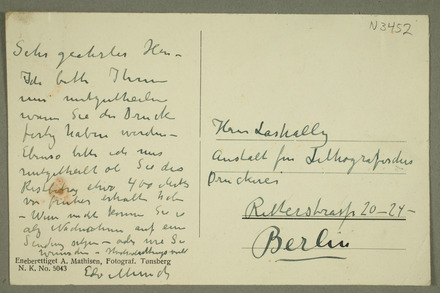 N3452
Sehr geehrter Herr –
Ich bitte Ihnen
mir mitzutheilen
wann Sie den Druck
fertig haben werden –
Ebenso bitte ich mir
mitgetheilt ob Sie das
Restbetrag etwa 400 Mark
vor früher erhalten haben
– Wenn nicht können Sie es
als Nachnahme auf ein
Sendung setzen – oder wie Sie
wünschen –
Edv. Munch
Eneberettiget A. Mathisen, Fotograf. Tønsberg
N. K. No. 5043
Herrn Lassally
Anstalt für Lithografisches
Druckerei
Ritterstrasse 20-24-
Berlin